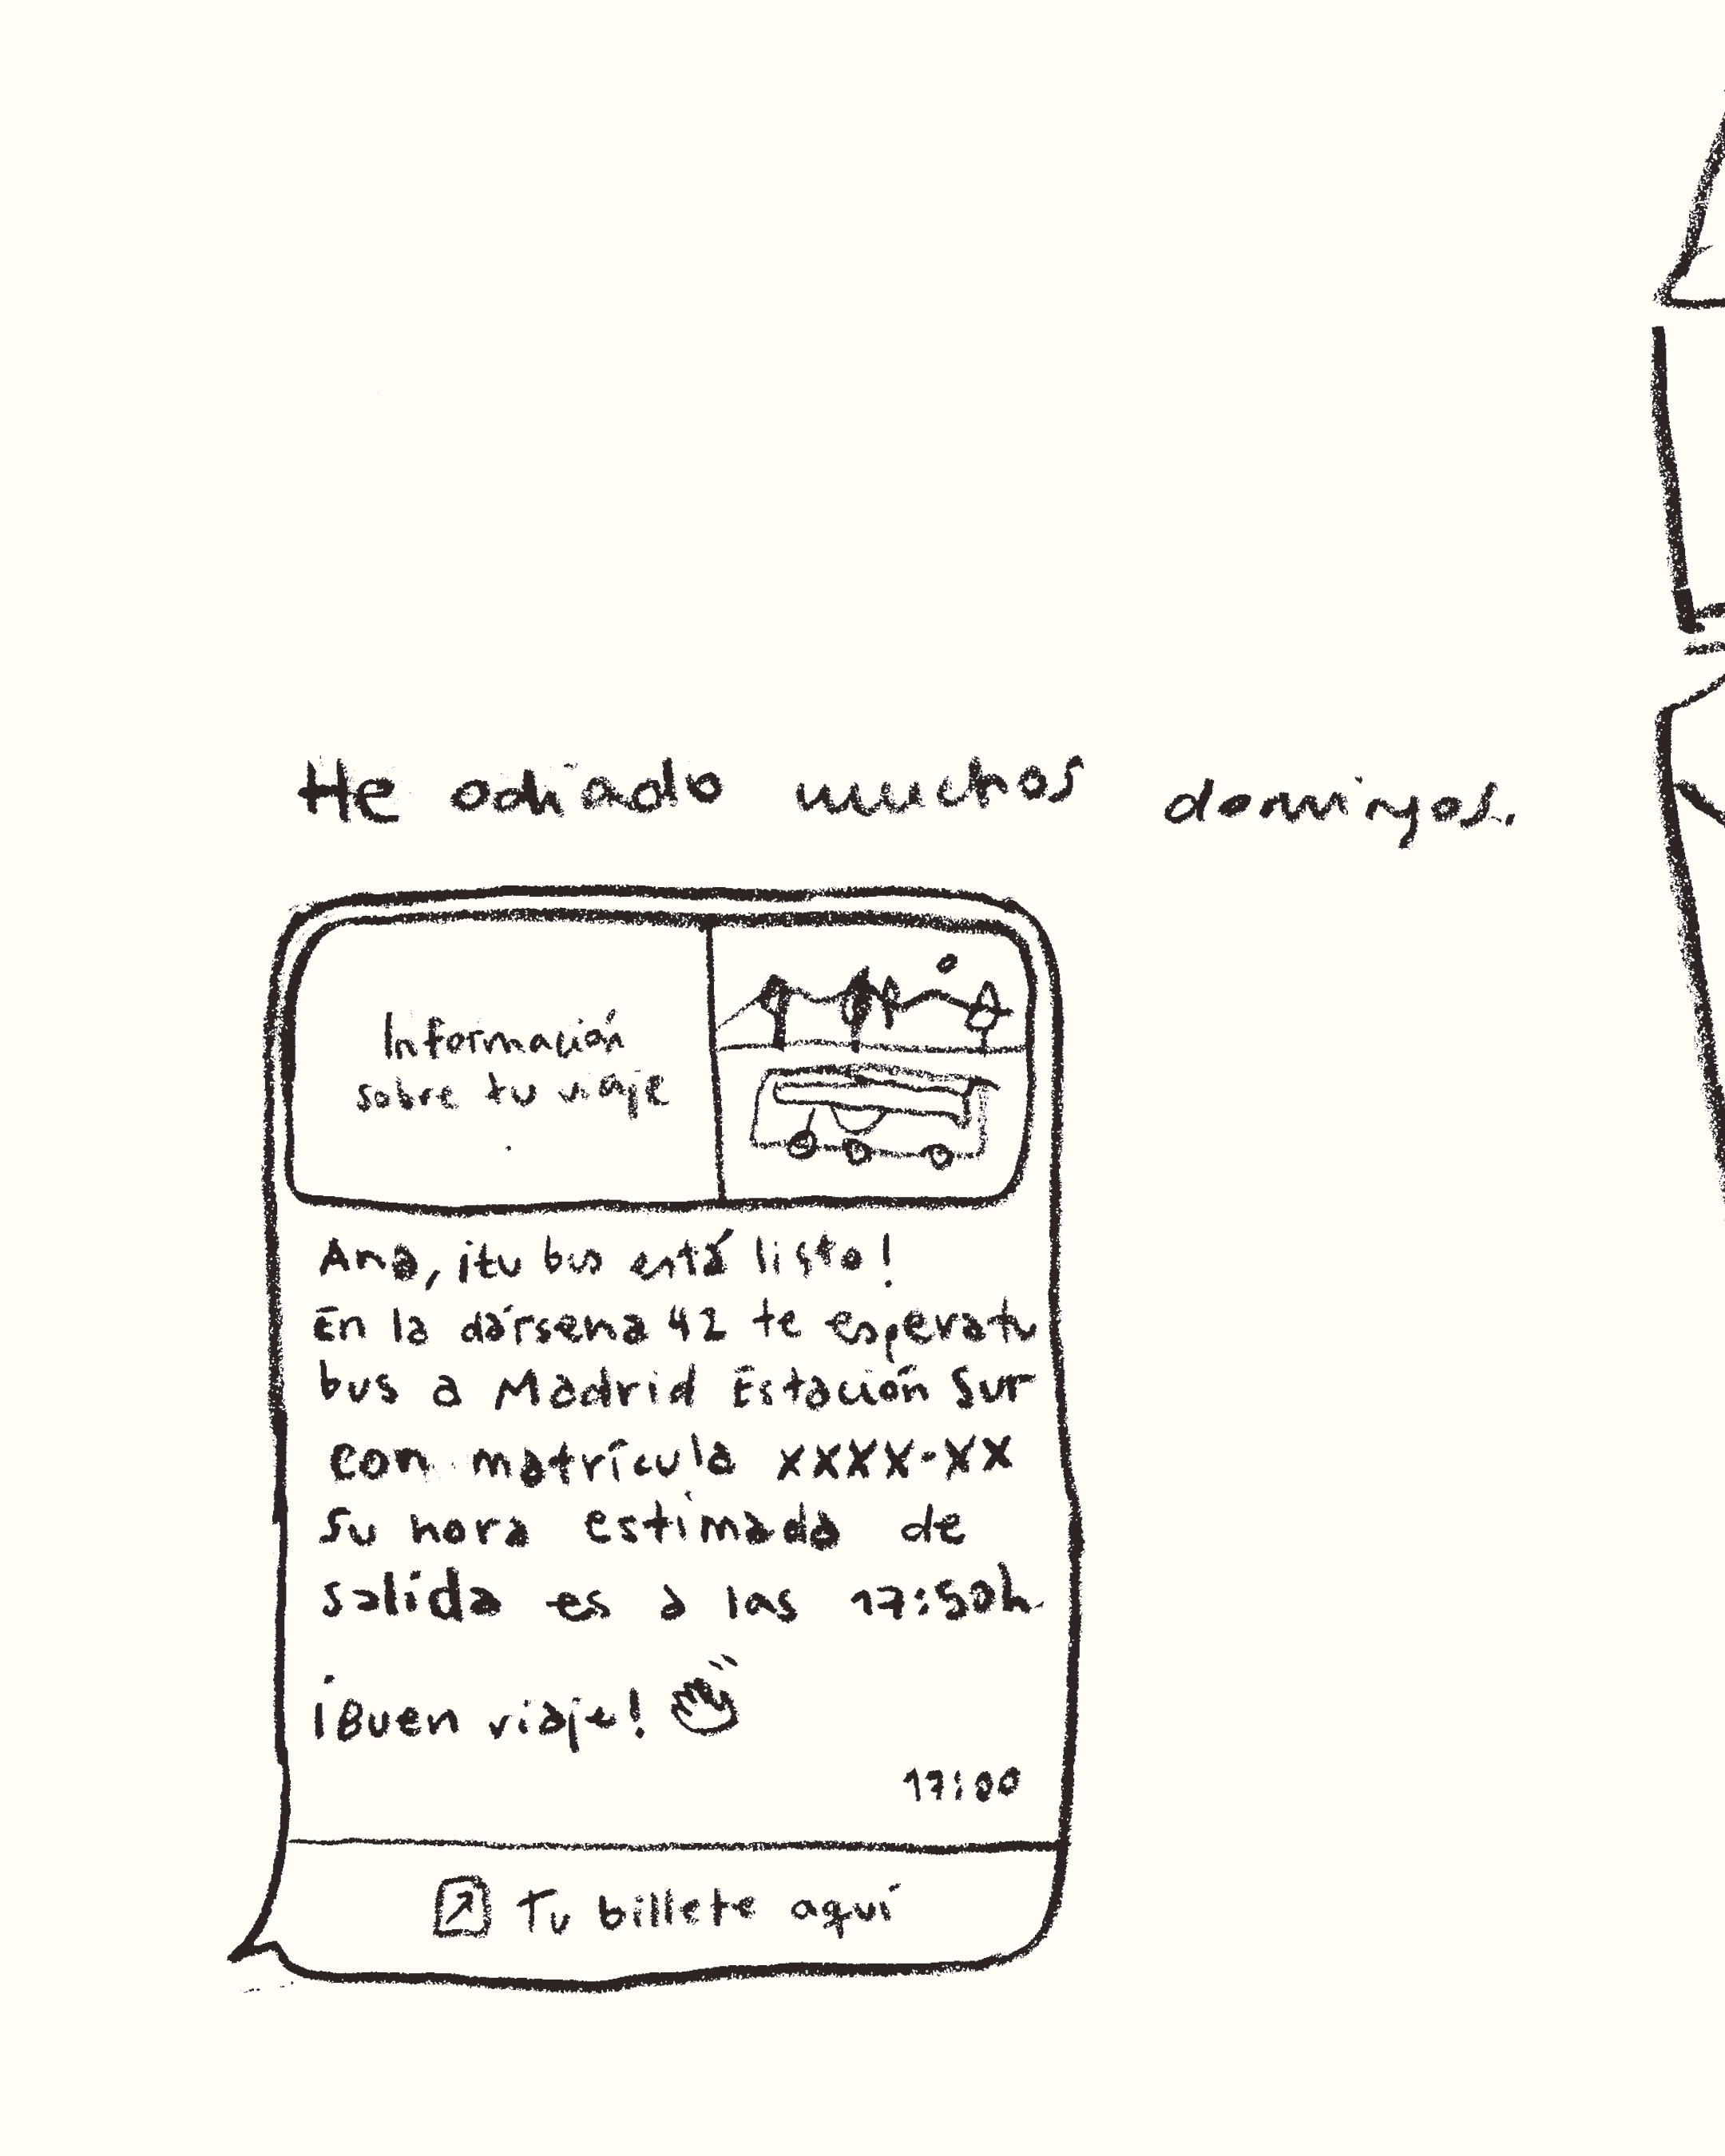 He odiado muchos domingos.
Información
sobre tu viaje
Ana, ¡tu bus está listo!
En la dársena 42 te espera tu
bus a Madrid Estación Sur
con matrícula xxxx-xx
Su hora estimada de
salida es a las 17:50h.
¡Buen viaje!
17:00
Tu billete aquí